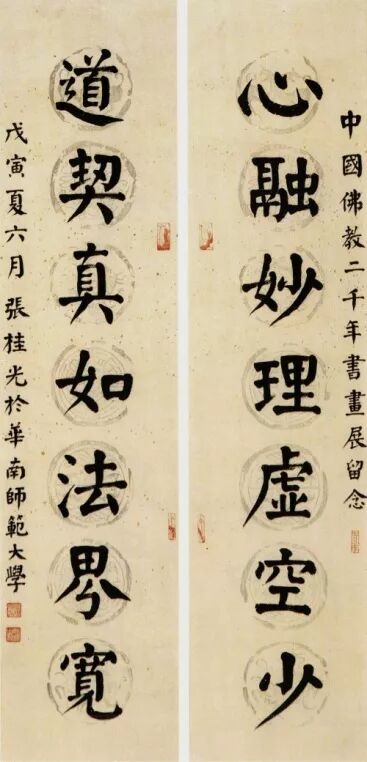 中國佛教二千年書畫展留念
心融妙理虛空少
道契真如法界寬
戊寅夏六月張桂光於華南師範大學